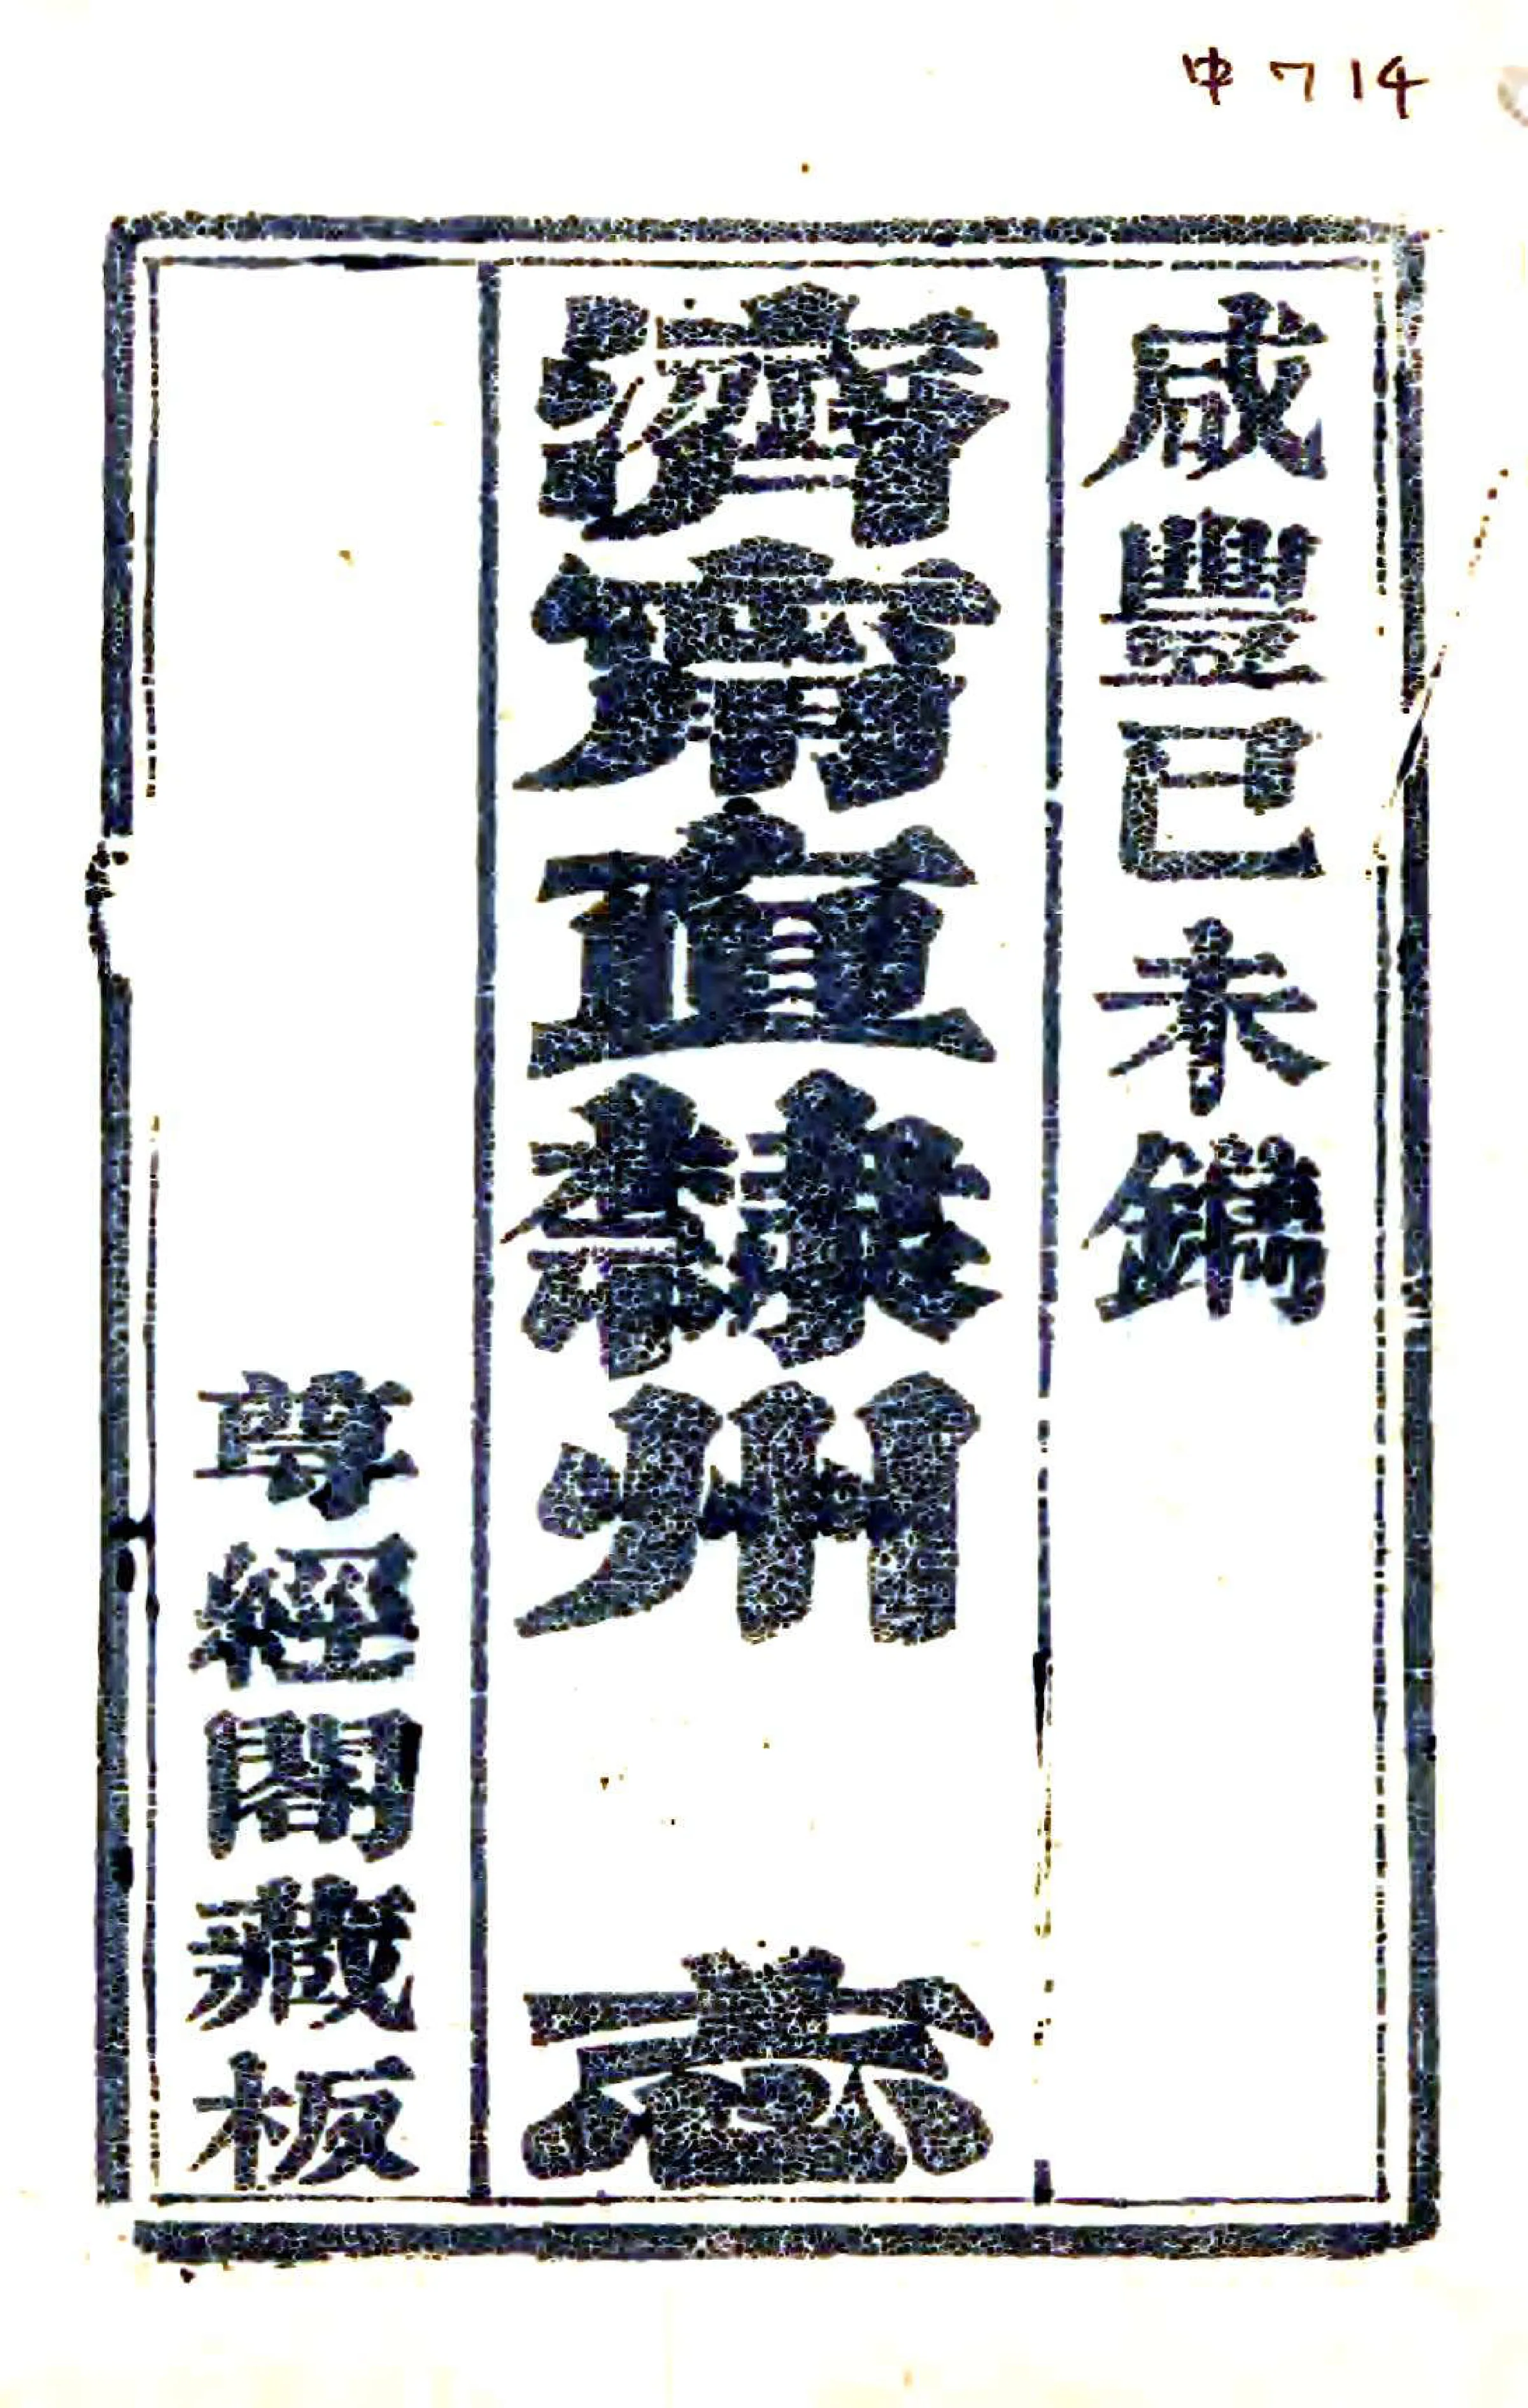 中 7 14
咸豐己未鐫
濟甯直隸州志
尊經閣藏板